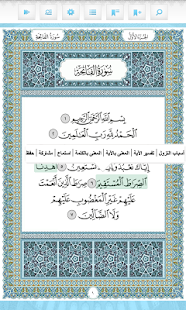 الجزء الأول
سورة الفاتحة
سُورَةُ الْفَاتِحَةِ
بِسْمِ اللَّهِ الرَّحْمَٰنِ الرَّحِيمِ ١
الْحَمْدُ لِلَّهِ رَبِّ الْعَالَمِينَ ٢
أسباب النزول | تفسير الآية | المعنى بالآية | المعنى بالكلمة | استماع | مشاركة | حفظ
إِيَّاكَ نَعْبُدُ وَإِيَّاكَ نَسْتَعِينُ ٥ اهْدِنَا
الصِّرَاطَ الْمُسْتَقِيمَ ٦ صِرَاطَ الَّذِينَ أَنْعَمْتَ
عَلَيْهِمْ غَيْرِ الْمَغْضُوبِ عَلَيْهِمْ
وَلَا الضَّالِّينَ ٧